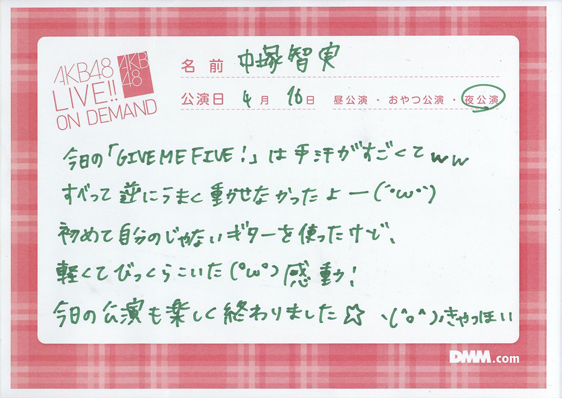 AKB48
LIVE!!
ON DEMAND
AKB
48
名前 中塚智実
公演日 4月 16日 昼公演・おやつ公演・夜公演
今日の「GIVE ME FIVE!」は手汗がすごくてww
すべって逆にうまく動かせなかったよー(´°ω°`)
初めて自分のじゃないギターを使ったけど、
軽くてびっくらこいた(°ω°)感動!
今日の公演も楽しく終わりました☆ ヽ(^o^)ノきゃっほい
DMM.com